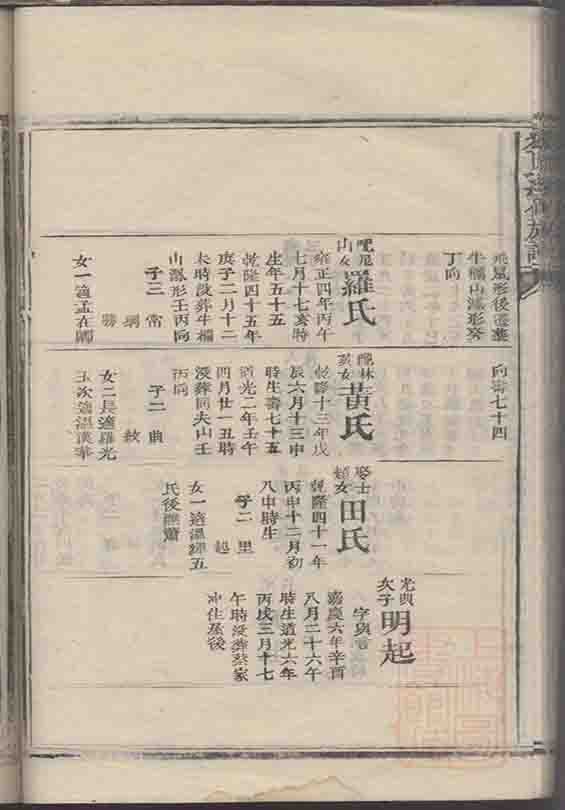 飛鳳形後遷葬
牛欄山鳳形癸
丁向
羅氏
山女
雍正四年丙午
七月十七亥時
生年五十五
乾隆四十五年
庚子二月十二
未時沒葬牛欄
山鳳形壬丙向
子三 常
女一適孟在
向壽七十四
黃氏
英女
乾隆十三年戊
辰六月十三申
時生壽七十五
道光二年壬午
四月廿一丑時
沒葬同夫山壬
丙向
子二 典
女二長適羅光
玉次適溫漢華
田氏
超女
乾隆四十一年
丙申十二月初
八申時生
子二 里
起
女一適溫經五
氏後醮蕭
光典
次子
明起
字與言
嘉慶六年辛酉
八月二十六午
時生道光六年
丙戌三月十七
午時沒葬蔡家
沖住基後